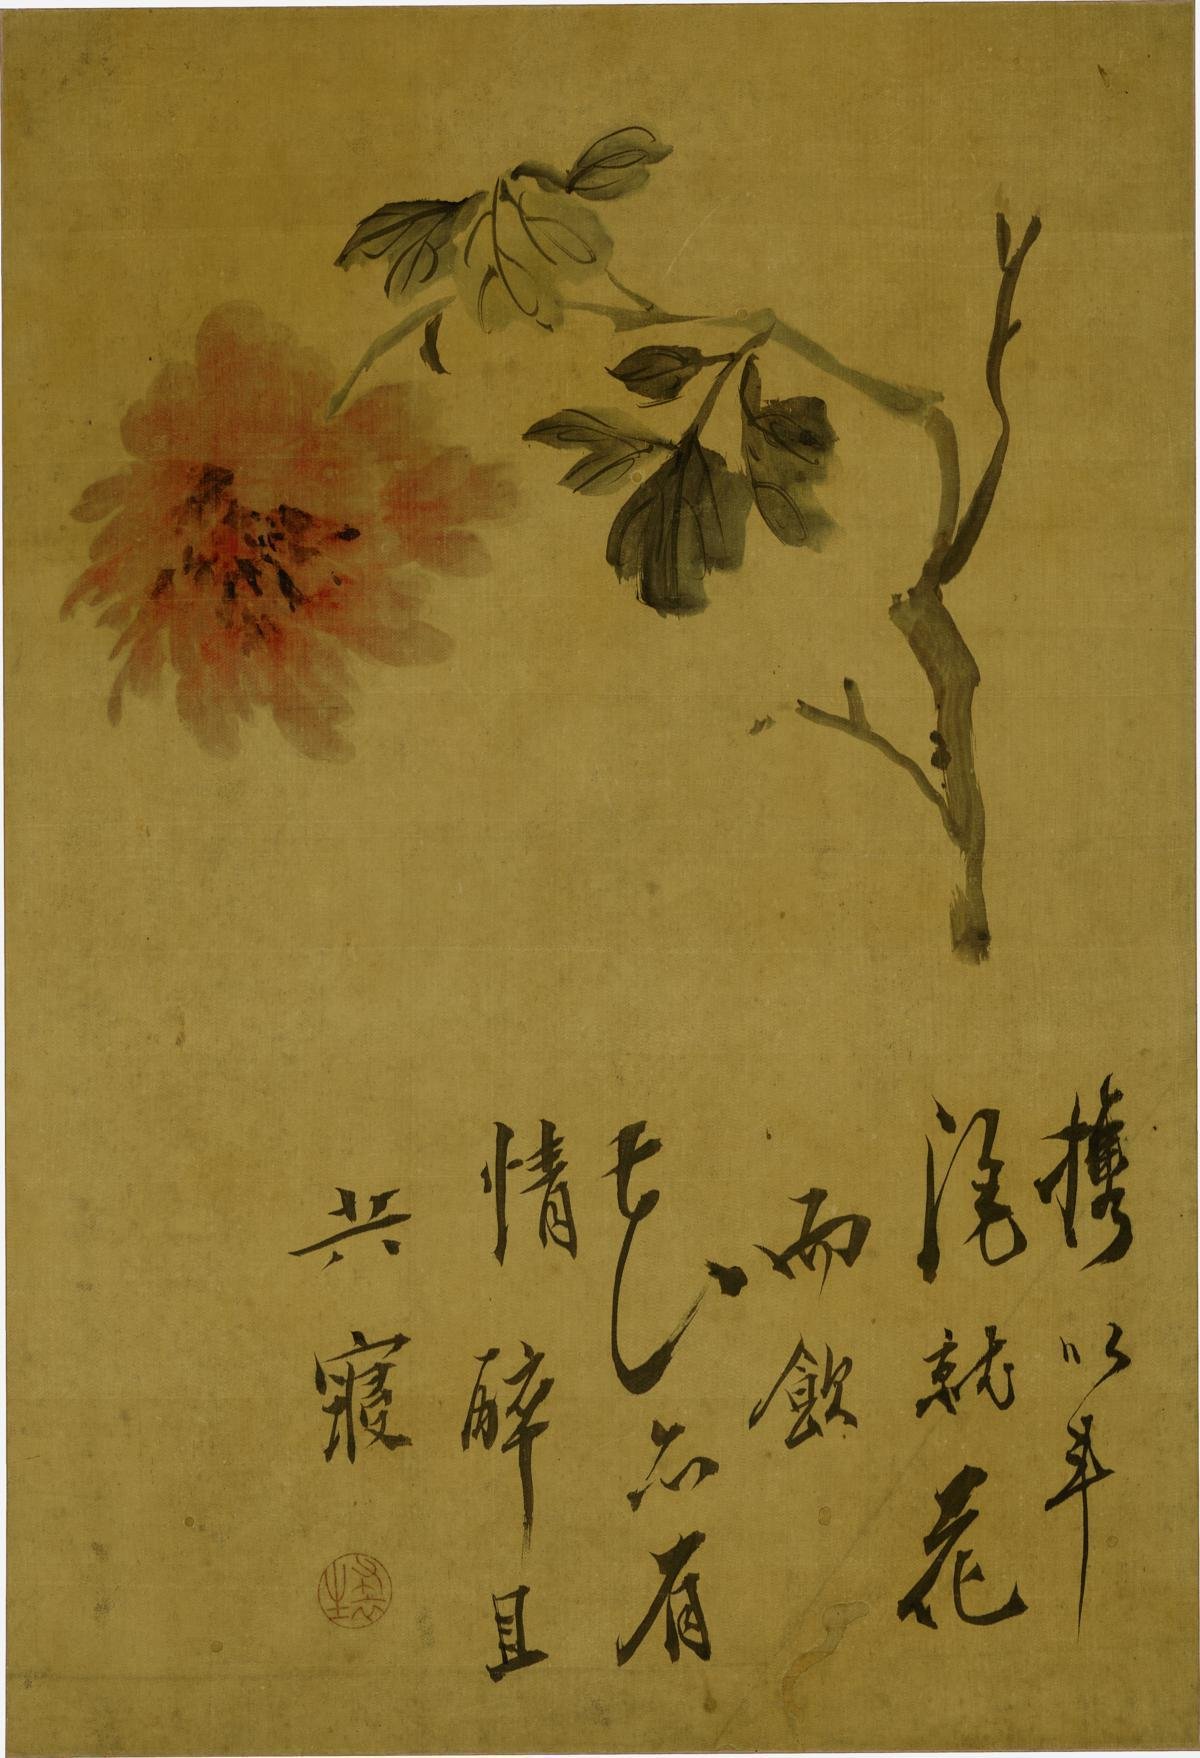 携以
就花
而飲
亦有
情醉且
共寢